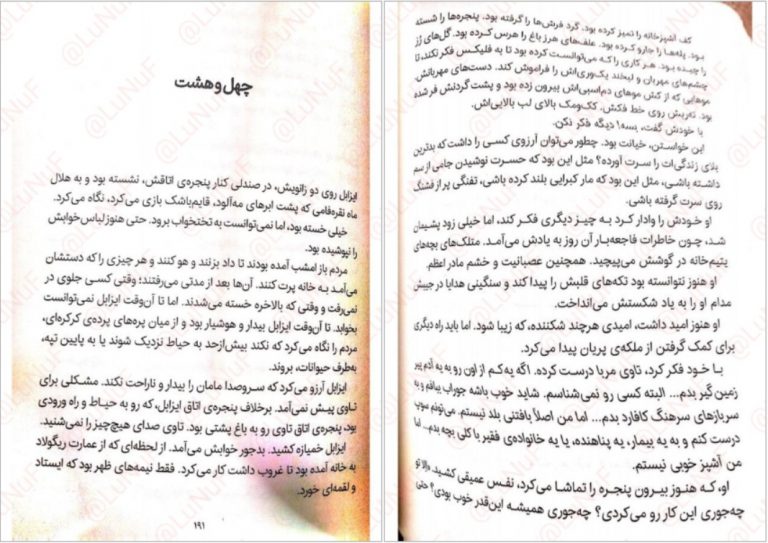 چهل‌وهشت
ایزابل روی دو زانویش، در صندلی کنار پنجره‌ی اتاقش، نشسته بود و به هلال
ماه نقره‌فامی که پشت ابرهای مه‌آلود، قایم‌باشک بازی می‌کرد، نگاه می‌کرد.
خیلی خسته بود، اما نمی‌توانست به تختخواب برود. حتی هنوز لباس خوابش
را نپوشیده بود.
مردم باز امشب آمده بودند تا داد بزنند و هو کنند و هر چیزی را که دستشان
می‌آمد به خانه پرت کنند. آن‌ها بعد از مدتی می‌رفتند؛ وقتی کسی جلوی در
نمی‌رفت و وقتی که بالاخره خسته می‌شدند. اما تا آن‌وقت ایزابل نمی‌توانست
بخوابد. تا آن‌وقت ایزابل بیدار و هوشیار بود و از میان پره‌های پرده‌ی کرکره‌ای،
مردم را نگاه می‌کرد که نکند بیش‌ازحد به حیاط نزدیک شوند یا به پایین تپه،
به‌طرف حیوانات، بروند.
ایزابل آرزو می‌کرد که سروصدا مامان را بیدار و ناراحت نکند. مشکلی برای
تاوی پیش نمی‌آمد. برخلاف پنجره‌ی اتاق ایزابل، که رو به حیاط و راه ورودی
بود، پنجره‌ی اتاق تاوی رو به باغ پشتی بود. تاوی صدای هیچ‌چیز را نمی‌شنید.
ایزابل خمیازه کشید. بدجور خوابش می‌آمد. از لحظه‌ای که از عمارت ریگولاد
به خانه آمده بود تا غروب داشت کار می‌کرد. فقط نیمه‌های ظهر بود که ایستاد
و لقمه‌ای خورد.
۱۹۱
کف آشپزخانه را تمیز کرده بود. گرد فرش‌ها را گرفته بود. پنجره‌ها را شسته
بود. پله‌ها را جارو کرده بود. علف‌های هرز باغ را هرس کرده بود. گل‌های رُز
را چیده بود. هر کاری را که می‌توانست کرده بود تا به فلیکس فکر نکند، تا
چشم‌های مهربان و لبخند یک‌وری‌اش را فراموش کند. دست‌های مهربانش.
موهایی که از کش موهای دم‌اسبی‌اش بیرون زده بود و پشت گردنش فر شده
بود. ته‌ریش روی خط فکش. کک‌ومک بالای لب بالایی‌اش.
با خودش گفت، بسه! دیگه فکر نکن.
این خواستن، خیانت بود. چطور می‌توان آرزوی کسی را داشت که بدترین
بلای زندگی‌ات را سرت آورده؟ مثل این بود که حسرت نوشیدن جامی از سم
داشته باشی، مثل این بود که مار کبرایی بلند کرده باشی، تفنگی پر از فشنگ
روی سرت گرفته باشی.
او خودش را وادار کرد به چیز دیگری فکر کند، اما خیلی زود پشیمان
شد، چون خاطرات فاجعه‌بار آن روز به یادش می‌آمد. متلک‌های بچه‌های
یتیم‌خانه در گوشش می‌پیچید. همچنین عصبانیت و خشم مادر اعظم.
او هنوز نتوانسته بود تکه‌های قلبش را پیدا کند و سنگینی هدایا در جیبش
مدام او را به یاد شکستش می‌انداخت.
او هنوز امید داشت، امیدی هرچند شکننده، که زیبا شود. اما باید راه دیگری
برای کمک گرفتن از ملکه‌ی پریان پیدا می‌کرد.
با خود فکر کرد، تاوی مربا درست کرده. اگه یه‌کم از اون رو به یه آدم پیر
زمین‌گیر بدم... البته کسی رو نمی‌شناسم. شاید خوب باشه جوراب ببافم و به
سربازهای سرهنگ کافارد بدم... اما من اصلاً بافتنی بلد نیستم. می‌تونم سوپ
درست کنم و به یه بیمار، یه پناهنده، یا یه خانواده‌ی فقیر با کلی بچه بدم... اما
من آشپز خوبی نیستم.
او، که هنوز بیرون پنجره را تماشا می‌کرد، نفس عمیقی کشید. «اِلا تو
چه‌جوری این کار رو می‌کردی؟ چه‌جوری همیشه این‌قدر خوب بودی؟ حتی